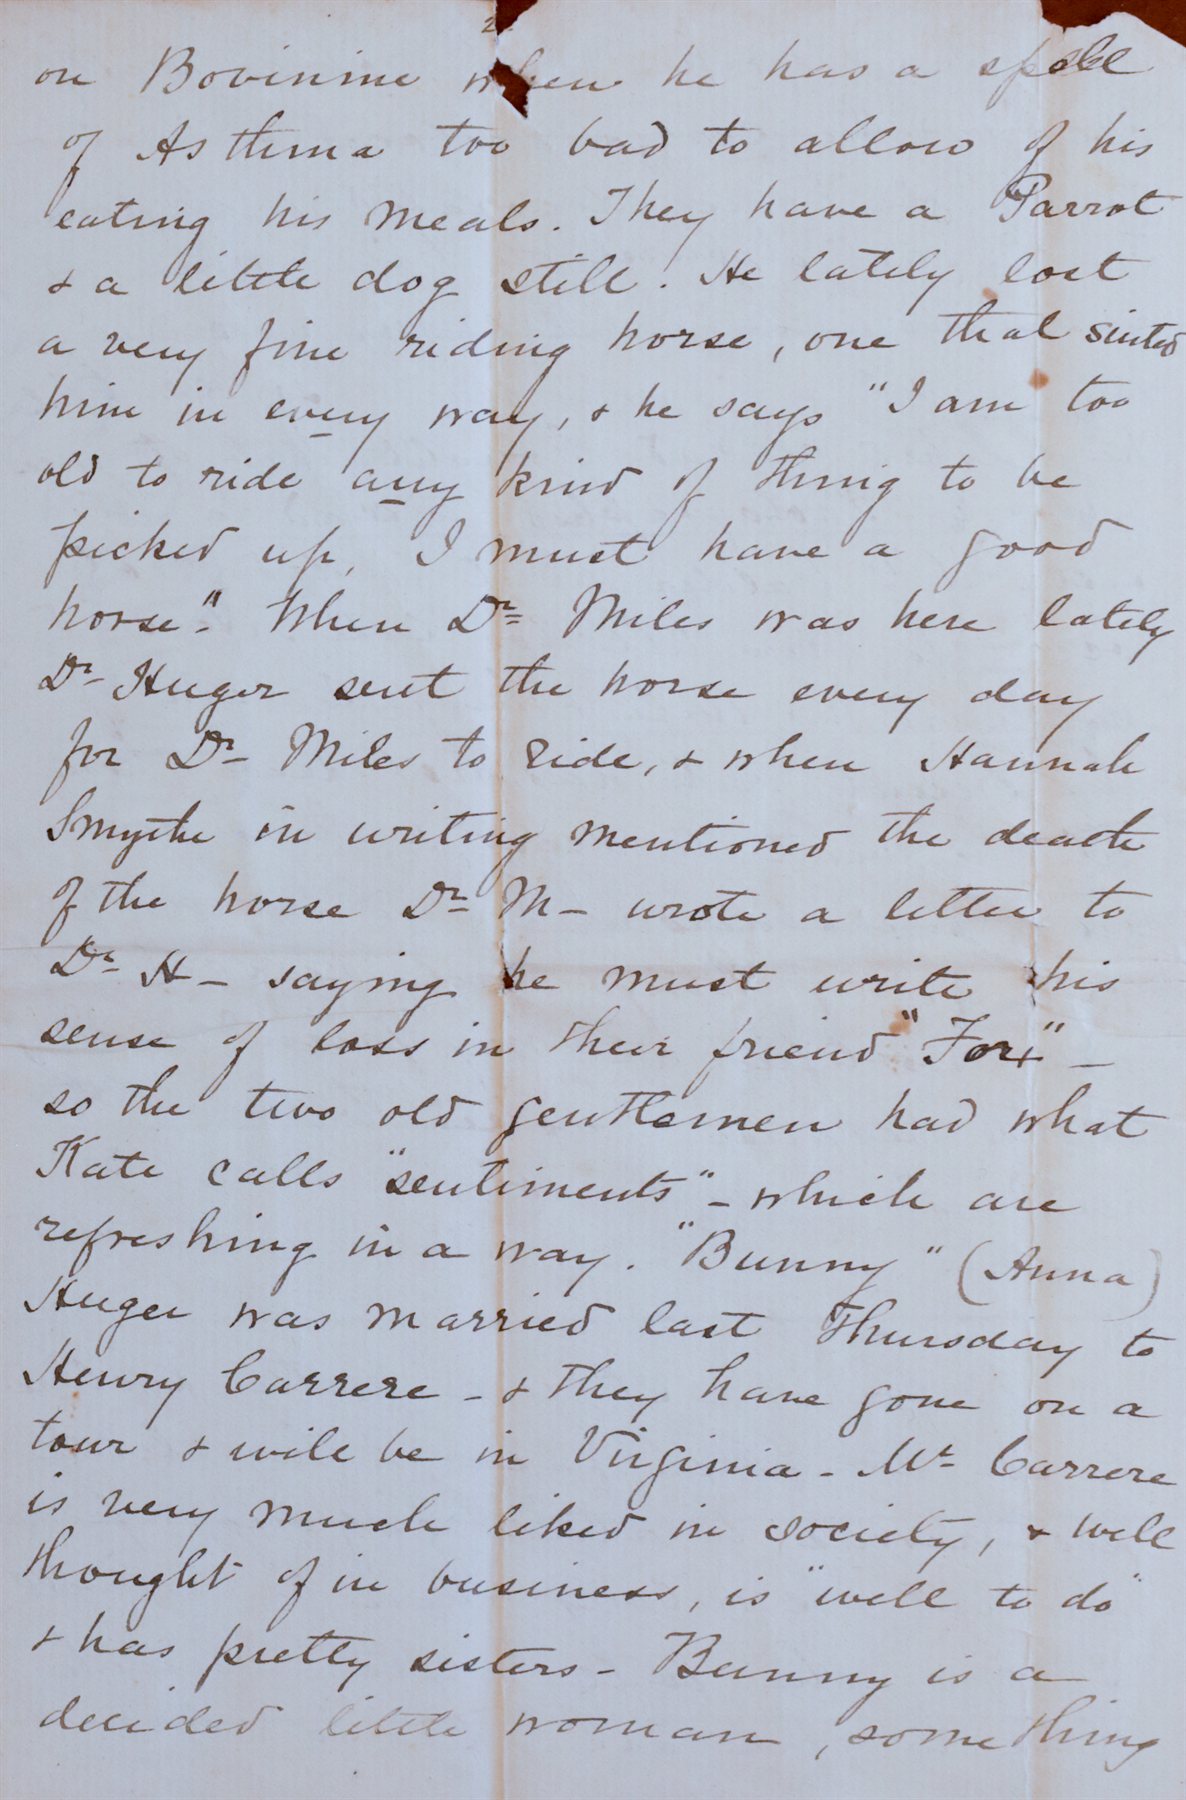 2
on Bovinine when he has a spell
of Asthma too bad to allow of his
eating his meals. They have a Parrot
& a little dog still. He lately lost
a very fine riding horse, one that suited
him in every way, & he says "I am too
old to ride any kind of thing to be
picked up, I must have a good
horse". When Dr Miles was here lately
Dr Huger sent the horse every day
for Dr Miles to ride, & when Hannah
Smythe in writing mentioned the death
of the horse Dr M- wrote a letter to
Dr H- saying he must write his
sense of loss in their friend "Fox" -
so the two old gentlemen had what
Kate calls "sentiments" - which are
refreshing in a way. "Bunny" (Anna)
Huger was married last Thursday to
Henry Carrere - & they have gone on a
tour & will be in Virginia - Mr Carrere
is very much liked in society, & well
thought of in business, is "well to do"
& has pretty sisters - Bunny is a
decided little woman, something